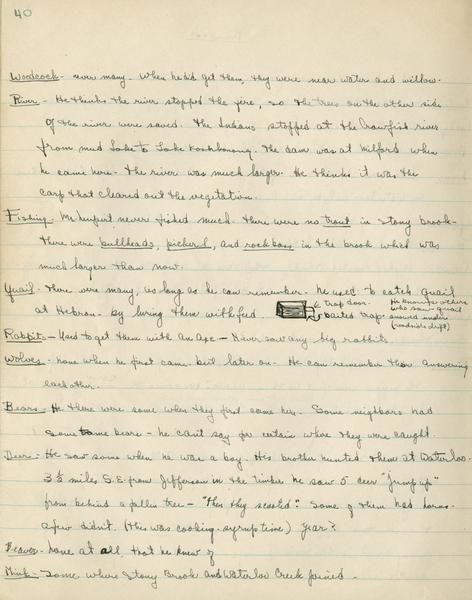 40
Woodcock - never many. When he did get them, they were near water and willow.
River - He thinks the river stopped the fire, so the trees on the other side
of the river were saved. The Indians stopped at the Crawfish river
from mud lake to Lake Koshkonong. The dam was at Milford when
he came here - The river was much larger. He thinks it was the
carp that cleared out the vegetation.
Fishing - Mr. never fished much. There were no trout in Stony brook -
there were bullheads, pickerel, and rock bass in the brook which was
much larger than now.
Quail - There were many, as long as he can remember. He used to catch quail
at Hebron - by luring them with feed.
trap door.
baited trap.
He knows others
who saw quail
snowed under
(roadside drift)
Rabbits - Used to get them with an axe - Never saw any big rabbits
Wolves - none when he first came but later on. He can remember them answering
each other.
Bears - He there were some when they first came here. Some neighbors had
some tame bears - he can't say for certain where they were caught.
Deer - He saw some when he was a boy. His brother hunted them at Waterloo.
3 1/2 miles S.E. from Jefferson in the timber he saw 5 deer "jump up"
from behind a fallen tree - "Then they scooted". Some of them had horns -
a few didn't. (this was cooking-syrup time) Year?
Beaver - none at all that he knew of
Mink - Some where Stony Brook and Waterloo Creek joined -